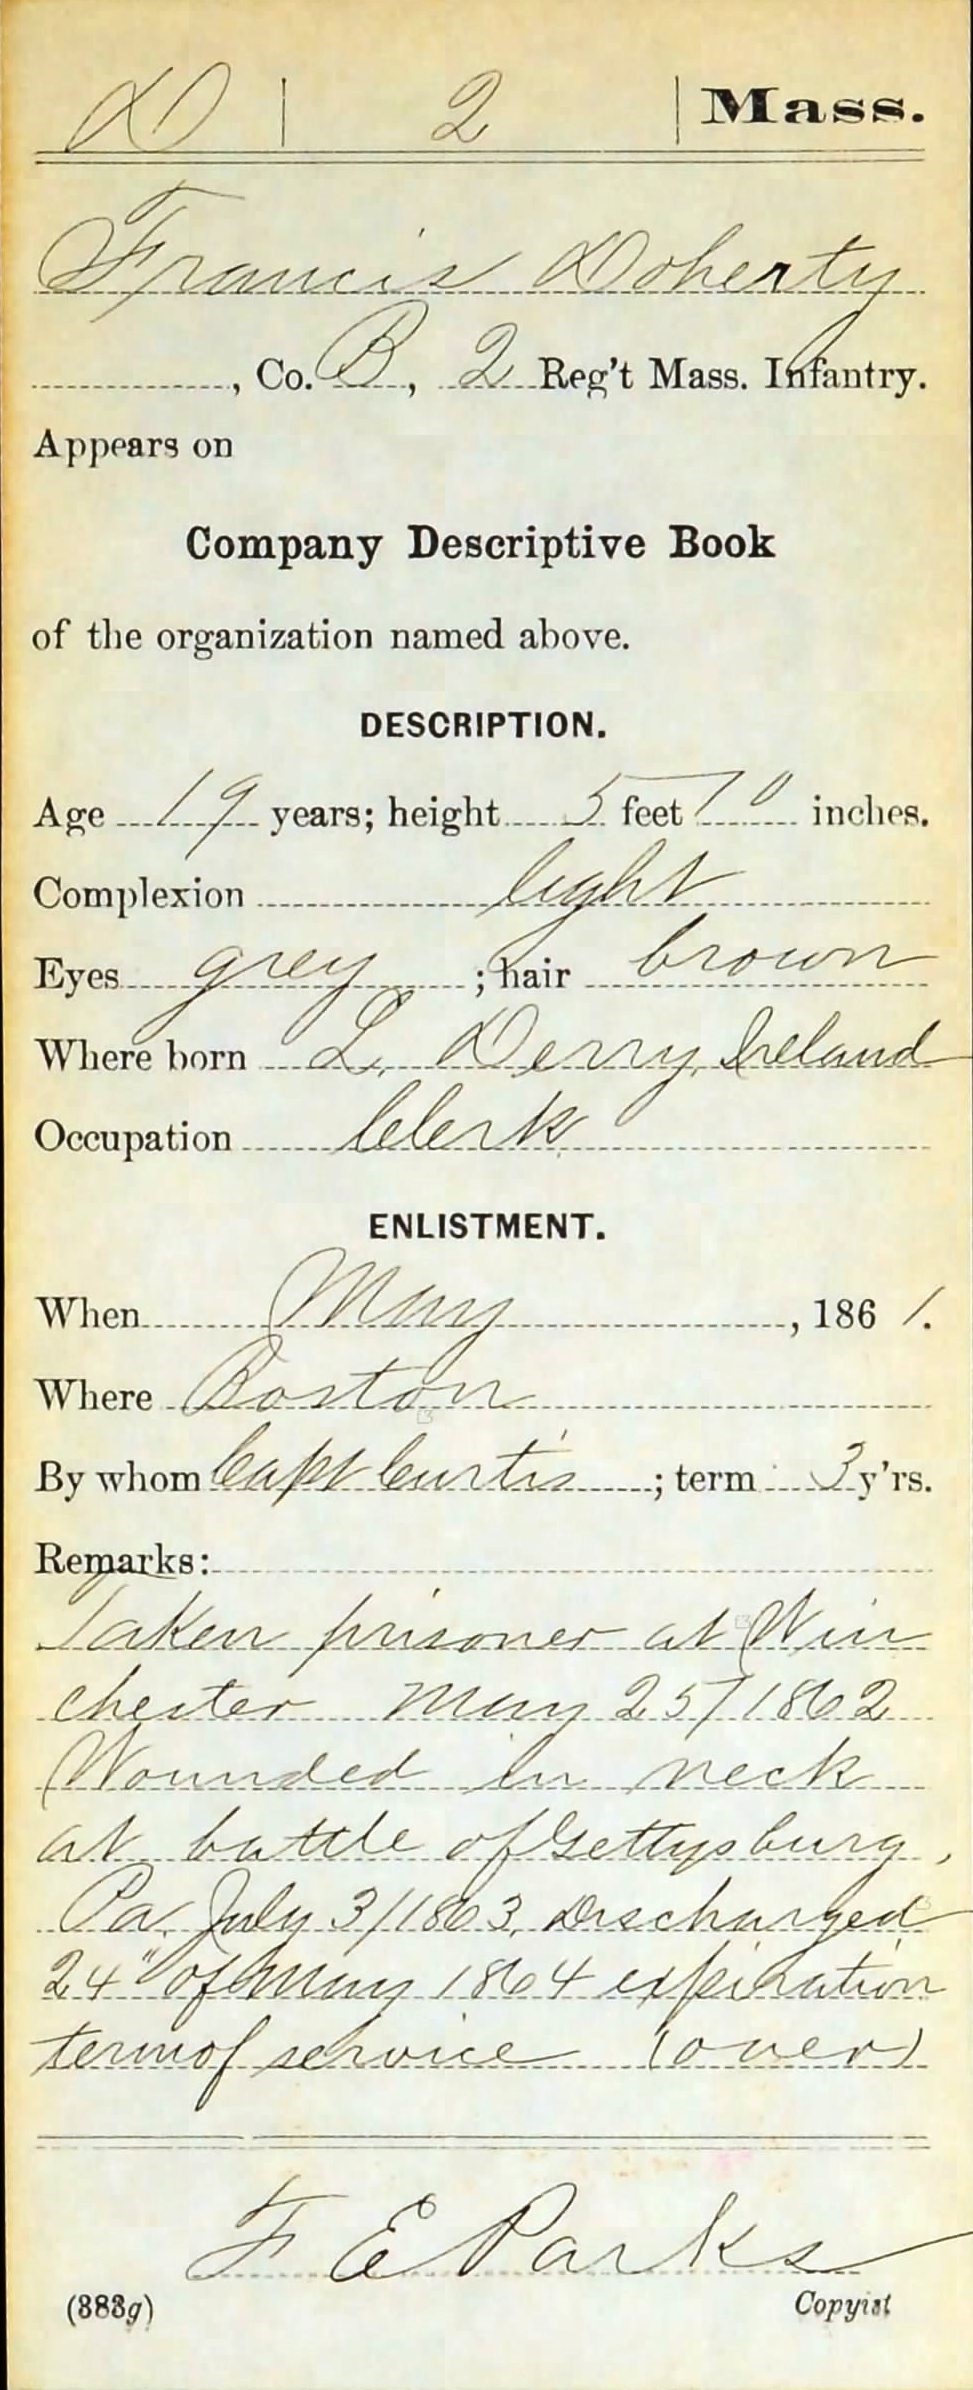 D | 2 | Mass.
Francis Doherty
, Co. B, 2 Reg't Mass. Infantry.
Appears on
Company Descriptive Book
of the organization named above.
DESCRIPTION.
Age 19 years; height 5 feet 10 inches.
Complexion light
Eyes grey ; hair brown
Where born L. Derry, Ireland
Occupation Clerk
ENLISTMENT.
When May , 1861.
Where Boston
By whom Capt Curtis ; term 3 y'rs.
Remarks:
Taken prisoner at Win
chester May 25/1862
Wounded in neck
at battle of Gettysburg,
Pa. July 3/1863. Discharged
24" of May 1864 expiration
term of service (over)
F E Parks
(383g) Copyist